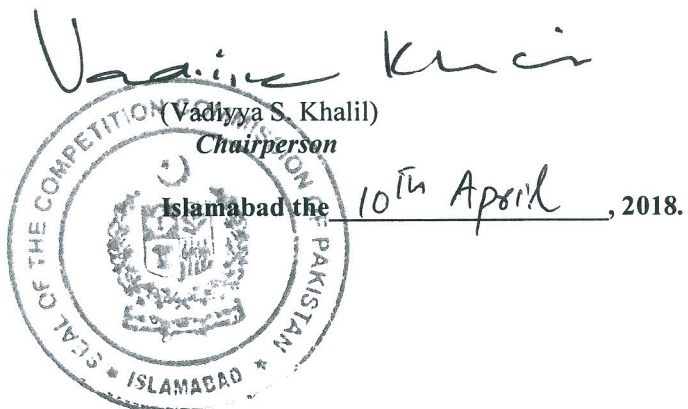 Vadiyya Khalil
(Vadiyya S. Khalil)
Chairperson
Islamabad the 10th April, 2018.
SEAL OF THE COMPETITION COMMISSION OF PAKISTAN
* ISLAMABAD *